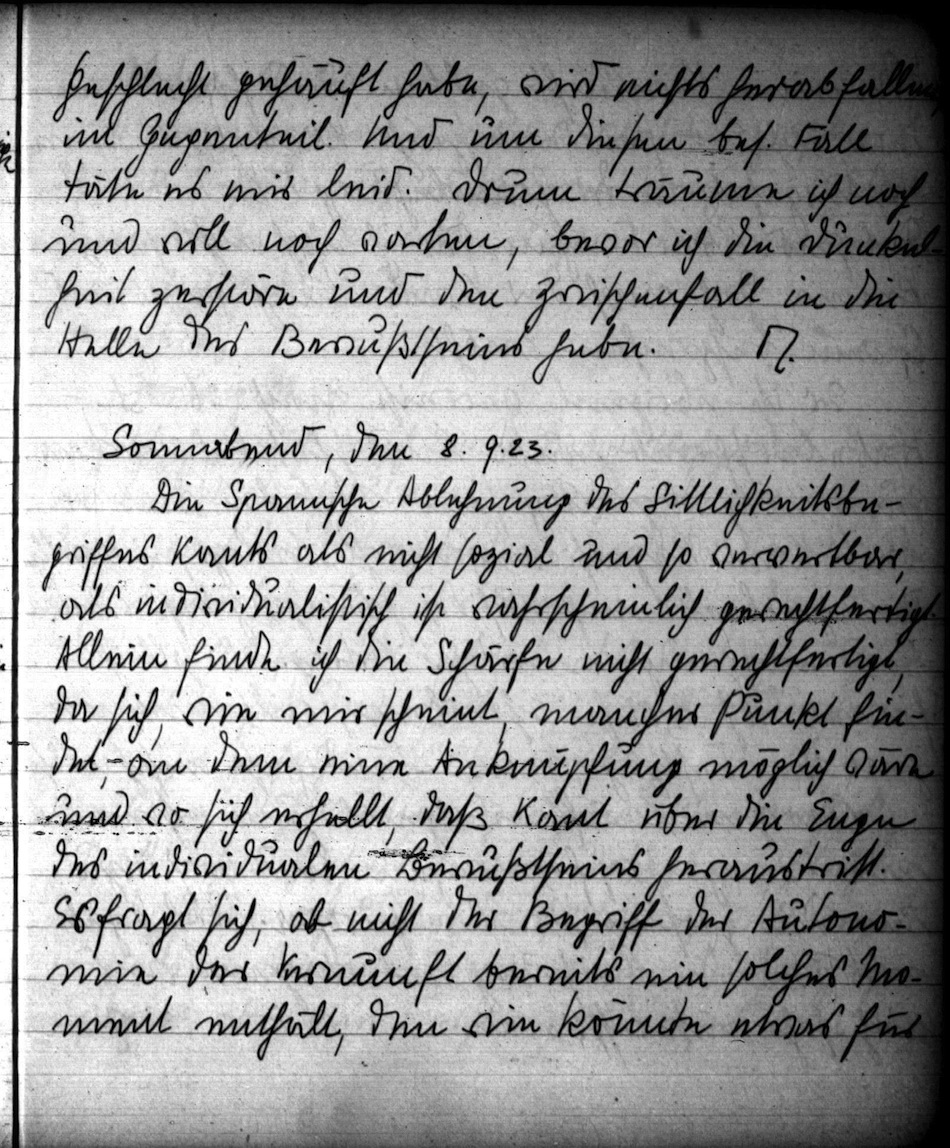 Geschlecht gehäuft habe, wird nichts herabfallen,
im Gegenteil. Und um diesen bes. Fall
täte es mir leid. Drum träume ich noch
und will noch warten, bevor ich die Dunkel-
heit zerstöre und den Zwischenfall in die
Helle des Bewußtseins hebe.
Sonnabend, den 8. 9. 23.
Die Spannsche Ablehnung des Sittlichkeitsbe-
griffes Kants als nicht sozial und so verwertbar,
als individualistisch ist wahrscheinlich gerechtfertigt.
Allein finde ich die Schärfe nicht gerechtfertigt,
da sich, wie mir scheint, mancher Punkt fin-
det, an dem eine Anknüpfung möglich wäre
und wo sich erhellt, daß Kant über die Enge
des individualen Bewußtseins heraustritt.
Es fragt sich, ob nicht der Begriff der Autono-
mie der Vernunft bereits ein solches Mo-
ment enthält, denn wie könnte etwas für